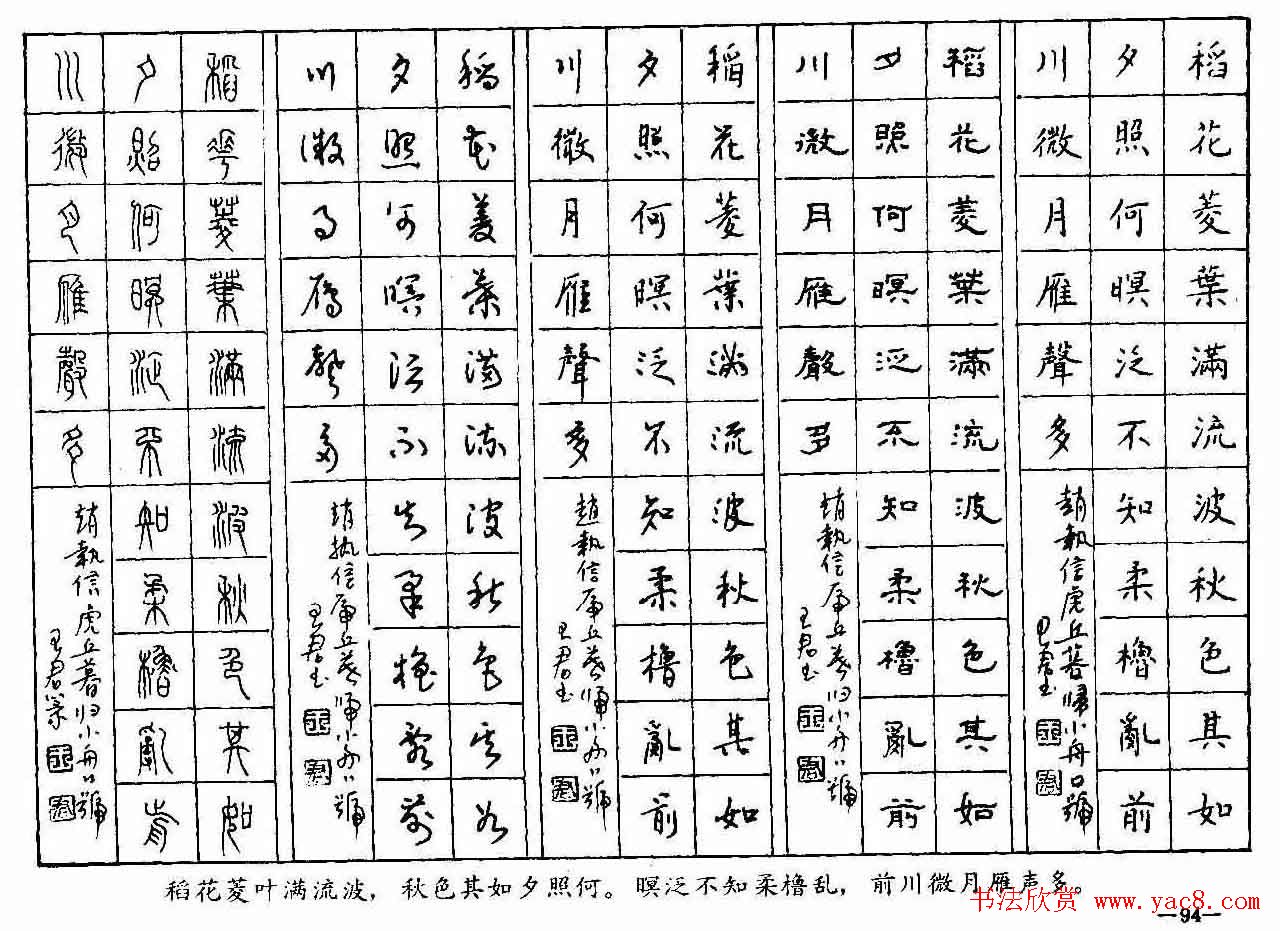 稻花菱葉滿流波秋色其如
夕照何暝泛不知柔櫓亂前
川微月雁聲多
趙執信虎丘暮歸小舟口號
王君书
稻花菱葉滿流波秋色其如
夕照何暝泛不知柔櫓亂前
川微月雁聲多
趙執信虎丘暮归小舟口號
王君书
稻花菱葉滿流波秋色其如
夕照何暝泛不知柔櫓亂前
川微月雁聲多
趙執信虎丘暮归小舟口號
王君书
稻花菱葉滿流波秋色其如
夕照何暝泛不知柔櫓亂前
川微月雁聲多
趙执信虎丘暮归小舟口號
王君书
稻華菱葉滿流波秋色其如
夕照何暝泛不知柔櫓亂前
川微月雁聲多
趙執信虎丘暮归小舟口號
王君篆
稻花菱叶满流波，秋色其如夕照何。暝泛不知柔橹乱，前川微月雁声多。
书法欣赏 www.yac8.com
—94—